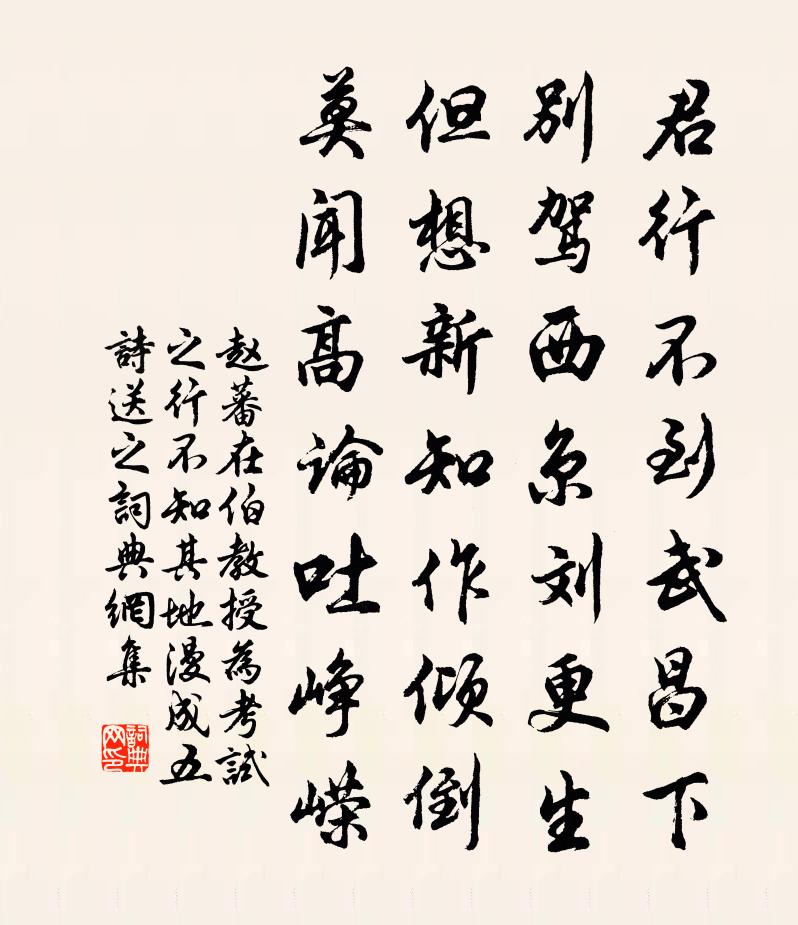 君行不到武昌下
别驾西京刘更生
但想新知作倾倒
莫闻高論吐峥嵘
赵蕃在伯教授為考試
之行不知其地漫成五
詩送之詞典網集
詞典网印